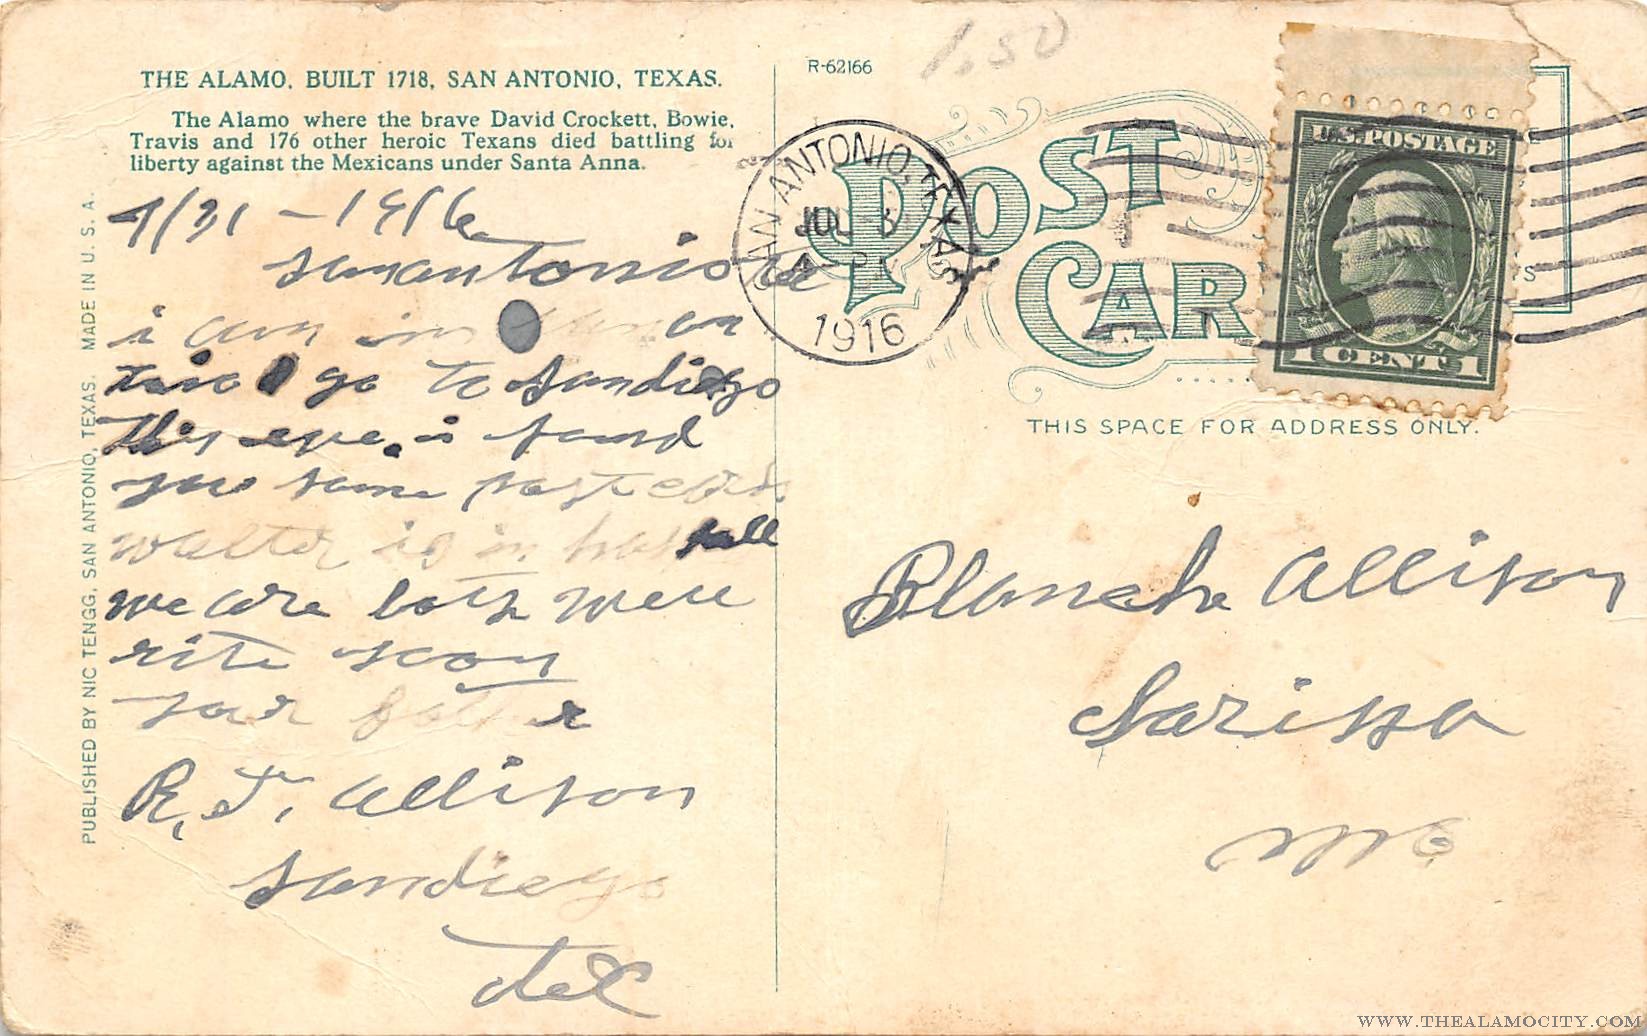 THE ALAMO, BUILT 1718, SAN ANTONIO, TEXAS.
The Alamo where the brave David Crockett, Bowie,
Travis and 176 other heroic Texans died battling for
liberty against the Mexicans under Santa Anna.
PUBLISHED BY NIC TENGG, SAN ANTONIO, TEXAS. MADE IN U. S. A.
7/31 - 1916
sanantonio tex
i am in on
go to Sandiego
This eve. i send
you some postcards
walter is in
we are both well
rite soon
your
R. T. Allison
Sandiego
tex
R-62166
1.50
POST CARD
SAN ANTONIO, TEXAS
JUL
1916
U.S. POSTAGE
1 CENT 1
THIS SPACE FOR ADDRESS ONLY.
Blanch Allison
Larissa
Mo
WWW.THEALAMOCITY.COM